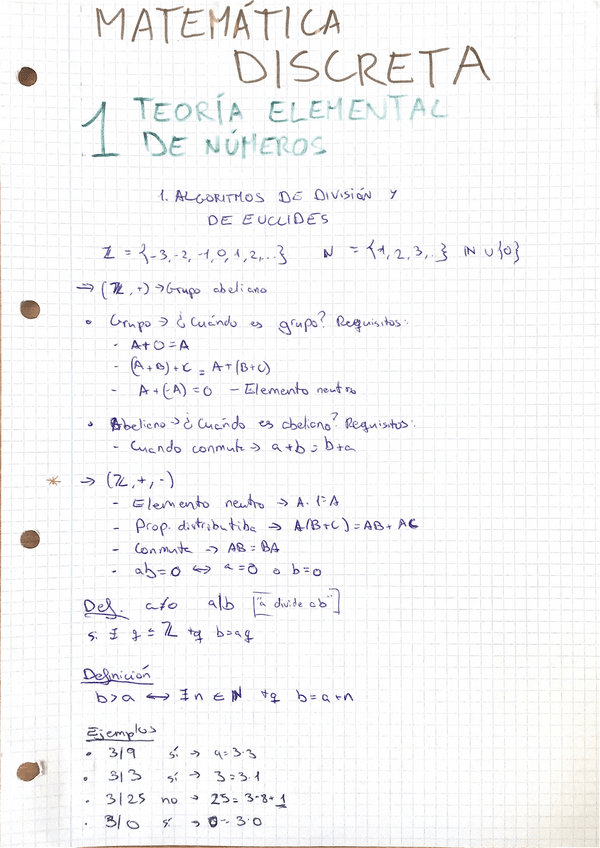 MATEMÁTICA
DISCRETA
1 TEORÍA ELEMENTAL
DE NÚMEROS
1. ALGORITMOS DE DIVISIÓN Y
DE EUCLIDES
ℤ = {-3,-2,-1,0,1,2,...} N = {1,2,3,..} IN ∪ {0}
⇒ (ℤ,+) → Grupo abeliano
• Grupo → ¿Cuándo es grupo? Requisitos:
- A+0=A
- (A+B)+C = A+(B+C)
- A+(-A)=0 - Elemento neutro
• Abeliano → ¿Cuándo es abeliano? Requisitos:
- Cuando conmuta → a+b=b+a
* → (ℤ,+,·)
- Elemento neutro → A·1=A
- Prop. distributiba → A(B+C)=AB+AC
- Conmuta → AB=BA
- ab=0 ↔ a=0 o b=0
Def. a≠0 a|b ["a divide a b"]
si ∃ q ∈ ℤ tq b=aq
Definición
b>a ↔ ∃n ∈ N tq b=a+n
Ejemplos
• 3|9 sí → 9=3·3
• 3|3 sí → 3=3·1
• 3|25 no → 25=3·8+1
• 3|0 sí → 0=3·0